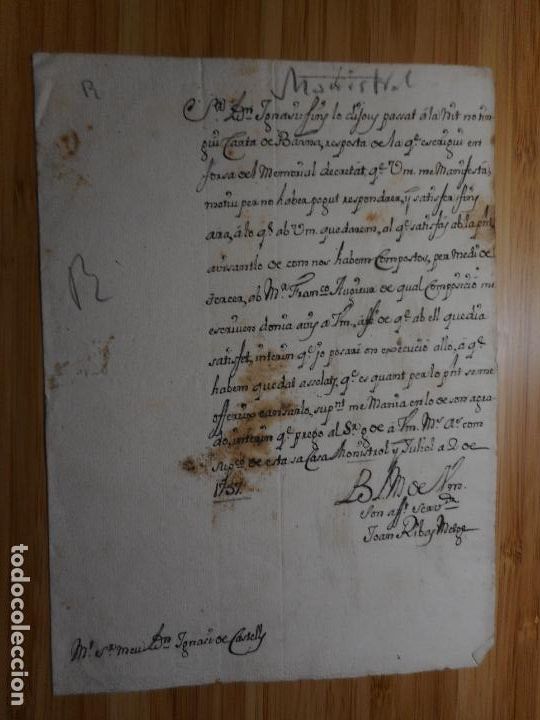 R
Monistrol
Sr. Dn. Ignasi fins lo dijous passat á la Nit no tin
gui Carta de Barna, resposta de la qe. escrigui en
forsa del Memorial decretat, qe. Vm. me Manifestá,
motiu per no haber pogut respondrer, y satisfer fins
ara, á lo qe. ab Vm. quedarem, al qe. satisfas ab la pnt.
avisantlo de com nos habem Compostos, per medi de
tercer, ab Mr. Franco. de qual Composició mi
escriuen donia avis a Vm. affi. de qe. ab ell quedia
satisfet, interim qe. jo posaré en execució allo, á qe.
habem quedat assolats, qe. es quant per lo pnt. se me
offereix avisarlo, supnt. me Mania en lo de son agra
do, interim qe. prego al Sr. g. de á Vm. Ms. As. com
supco. de esta sa Casa Monistrol y Juliol a 2 de
1757.
R
B L M de Vm.
son afft. servdr.
Joan Ribas Metge
Mr. Sr. meu Dn. Ignasi de Castells
todocoleccion.net